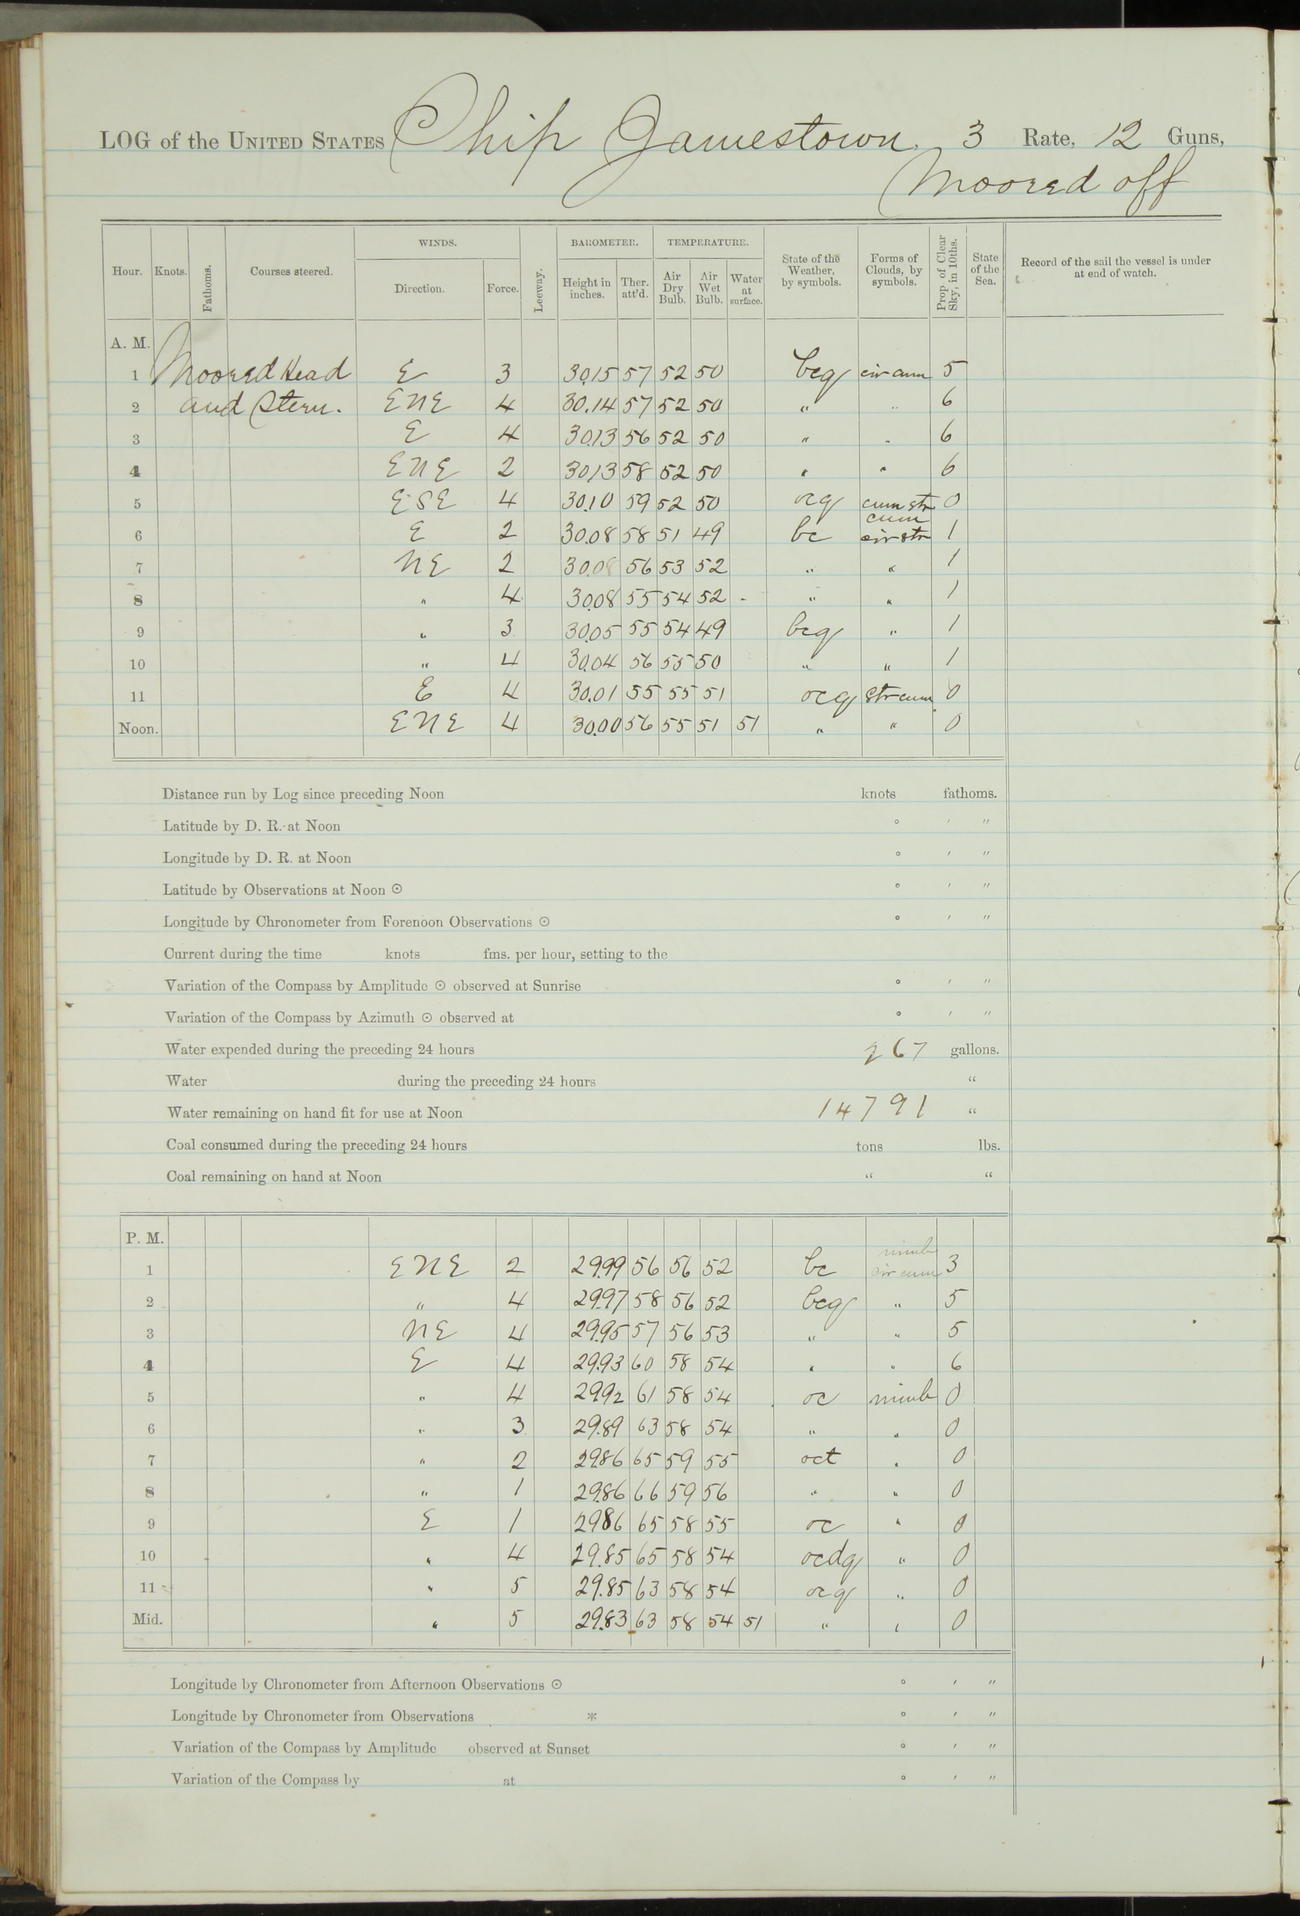 LOG of the UNITED STATES Ship Jamestown, 3 Rate, 12 Guns,
Moored off
Hour. Knots. Fathoms. Courses steered. WINDS. Direction. Force. Leeway. BAROMETER. Height in inches. Ther. att'd. TEMPERATURE. Air Dry Bulb. Air Wet Bulb. Water at surface. State of the Weather, by symbols. Forms of Clouds, by symbols. Prop. of Clear Sky, in 10ths. State of the Sea. Record of the sail the vessel is under at end of watch.
A. M.
1 Moored Head E 3 30.15 57 52 50 bcq cir cum 5
2 and Stern. ENE 4 30.14 57 52 50 " " 6
3 E 4 30.13 56 52 50 " " 6
4 ENE 2 30.13 58 52 50 " " 6
5 ESE 4 30.10 59 52 50 ocq cum str 0
6 E 2 30.08 58 51 49 bc cum cir str 1
7 NE 2 30.08 56 53 52 " " 1
8 " 4 30.08 55 54 52 - " " 1
9 " 3 30.05 55 54 49 bcq " 1
10 " 4 30.04 56 55 50 " " 1
11 E 4 30.01 55 55 51 ocq str cum 0
Noon. ENE 4 30.00 56 55 51 51 " " 0
Distance run by Log since preceding Noon knots fathoms.
Latitude by D. R. at Noon ° ′ ″
Longitude by D. R. at Noon ° ′ ″
Latitude by Observations at Noon ⊙ ° ′ ″
Longitude by Chronometer from Forenoon Observations ⊙ ° ′ ″
Current during the time knots fms. per hour, setting to the
Variation of the Compass by Amplitude ⊙ observed at Sunrise ° ′ ″
Variation of the Compass by Azimuth ⊙ observed at ° ′ ″
Water expended during the preceding 24 hours 267 gallons.
Water during the preceding 24 hours "
Water remaining on hand fit for use at Noon 14791 "
Coal consumed during the preceding 24 hours tons lbs.
Coal remaining on hand at Noon " "
P. M.
1 ENE 2 29.99 56 56 52 bc nimb cir cum 3
2 " 4 29.97 58 56 52 bcq " 5
3 NE 4 29.95 57 56 53 " " 5
4 E 4 29.93 60 58 54 " " 6
5 " 4 29.92 61 58 54 oc nimb 0
6 " 3 29.89 63 58 54 " " 0
7 " 2 29.86 65 59 55 oct " 0
8 " 1 29.86 66 59 56 " " 0
9 E 1 29.86 65 58 55 oc " 0
10 " 4 29.85 65 58 54 ocdq " 0
11 " 5 29.85 63 58 54 ocq " 0
Mid. " 5 29.83 63 58 54 51 " " 0
Longitude by Chronometer from Afternoon Observations ⊙ ° ′ ″
Longitude by Chronometer from Observations * ° ′ ″
Variation of the Compass by Amplitude observed at Sunset ° ′ ″
Variation of the Compass by at ° ′ ″